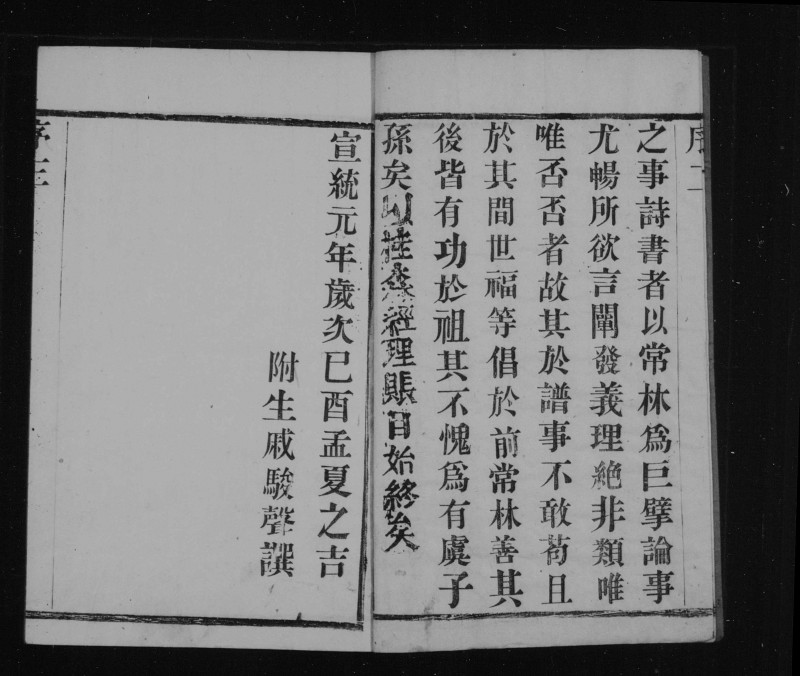 序二
之事詩書者以常林爲巨擘論事
尤暢所欲言闡發義理絶非類唯
唯否否者故其於譜事不敢苟且
於其間世福等倡於前常林善其
後皆有功於祖其不愧爲有虞子
孫矣以桂森經理賬目始終矣
宣統元年歲次巳酉孟夏之吉
附生戚駿聲譔
序三